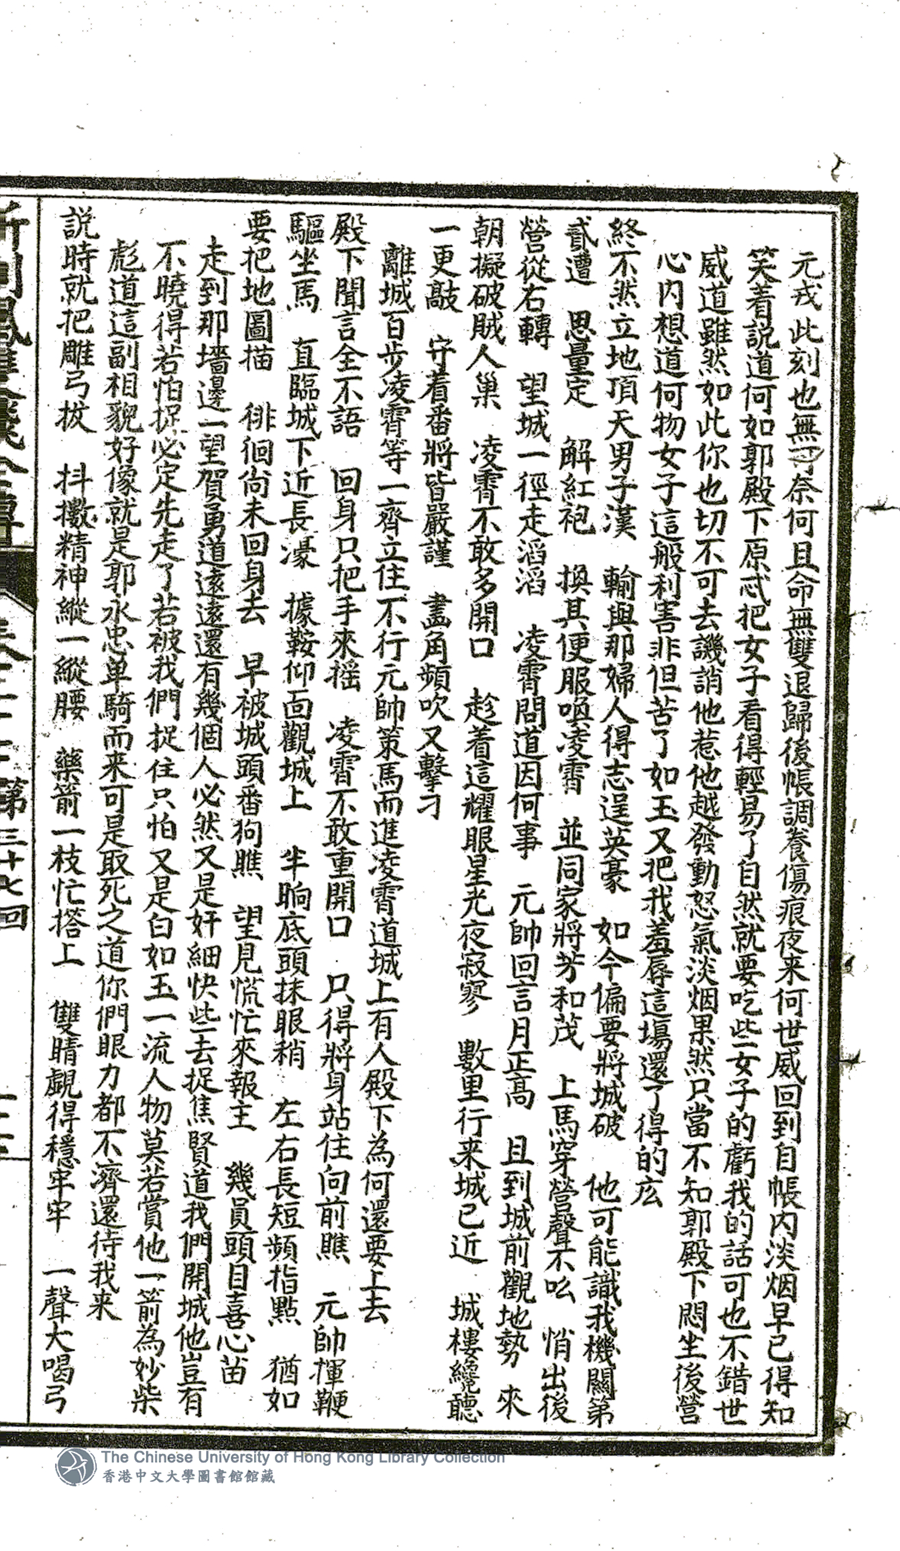 元戎此刻也無可奈何且命無雙退歸後帳調養傷痕夜来何世威回到自帳內淡烟早已得知
笑着說道何如郭殿下原忒把女子看得輕易了自然就要吃些女子的虧我的話可也不錯世
威道雖然如此你也切不可去譏誚他惹他越發動怒氣淡烟果然只當不知郭殿下悶坐後營
心內想道何物女子這般利害非但苦了如玉又把我羞辱這塲還了得的庅
終不然立地頂天男子漢 輸與那婦人得志逞英豪 如今偏要將城破 他可能識我機關第
貳遭 思量定 解紅袍 換其便服喚凌霄 並同家將芳和茂 上馬穿營聲不吆 悄出後
營從右轉 望城一徑走滔滔 凌霄問道因何事 元帥回言月正高 且到城前觀地勢 來
朝擬破賊人巢 凌霄不敢多開口 趁着這耀眼星光夜寂寥 數里行来城已近 城樓纔聽
一更敲 守着番將皆嚴謹 畫角頻吹又擊刁
離城百步凌霄等一齊立住不行元帥策馬而進凌霄道城上有人殿下為何還要上去
殿下聞言全不語 回身只把手來摇 凌霄不敢重開口 只得將身站住向前瞧 元帥揮鞭
驅坐馬 直臨城下近長濠 據鞍仰面觀城上 半晌底頭抹眼稍 左右長短頻指點 猶如
要把地圖描 徘徊尚未回身去 早被城頭番狗瞧 望見慌忙來報主 幾員頭目喜心苗
走到那墻邊一望賀勇道遠遠還有幾個人必然又是奸細快些去捉焦賢道我們開城他豈有
不曉得若怕捉必定先走了若被我們捉住只怕又是白如玉一流人物莫若賞他一箭為妙柴
彪道這副相貌好像就是郭永忠单騎而来可是取死之道你們眼力都不濟還待我来
說時就把雕弓拔 抖擻精神縱一縱腰 藥箭一枝忙搭上 雙睛覷得穩牢牢 一聲大喝弓
第三十七回
The Chinese University of Hong Kong Library Collection
香港中文大學圖書館館藏